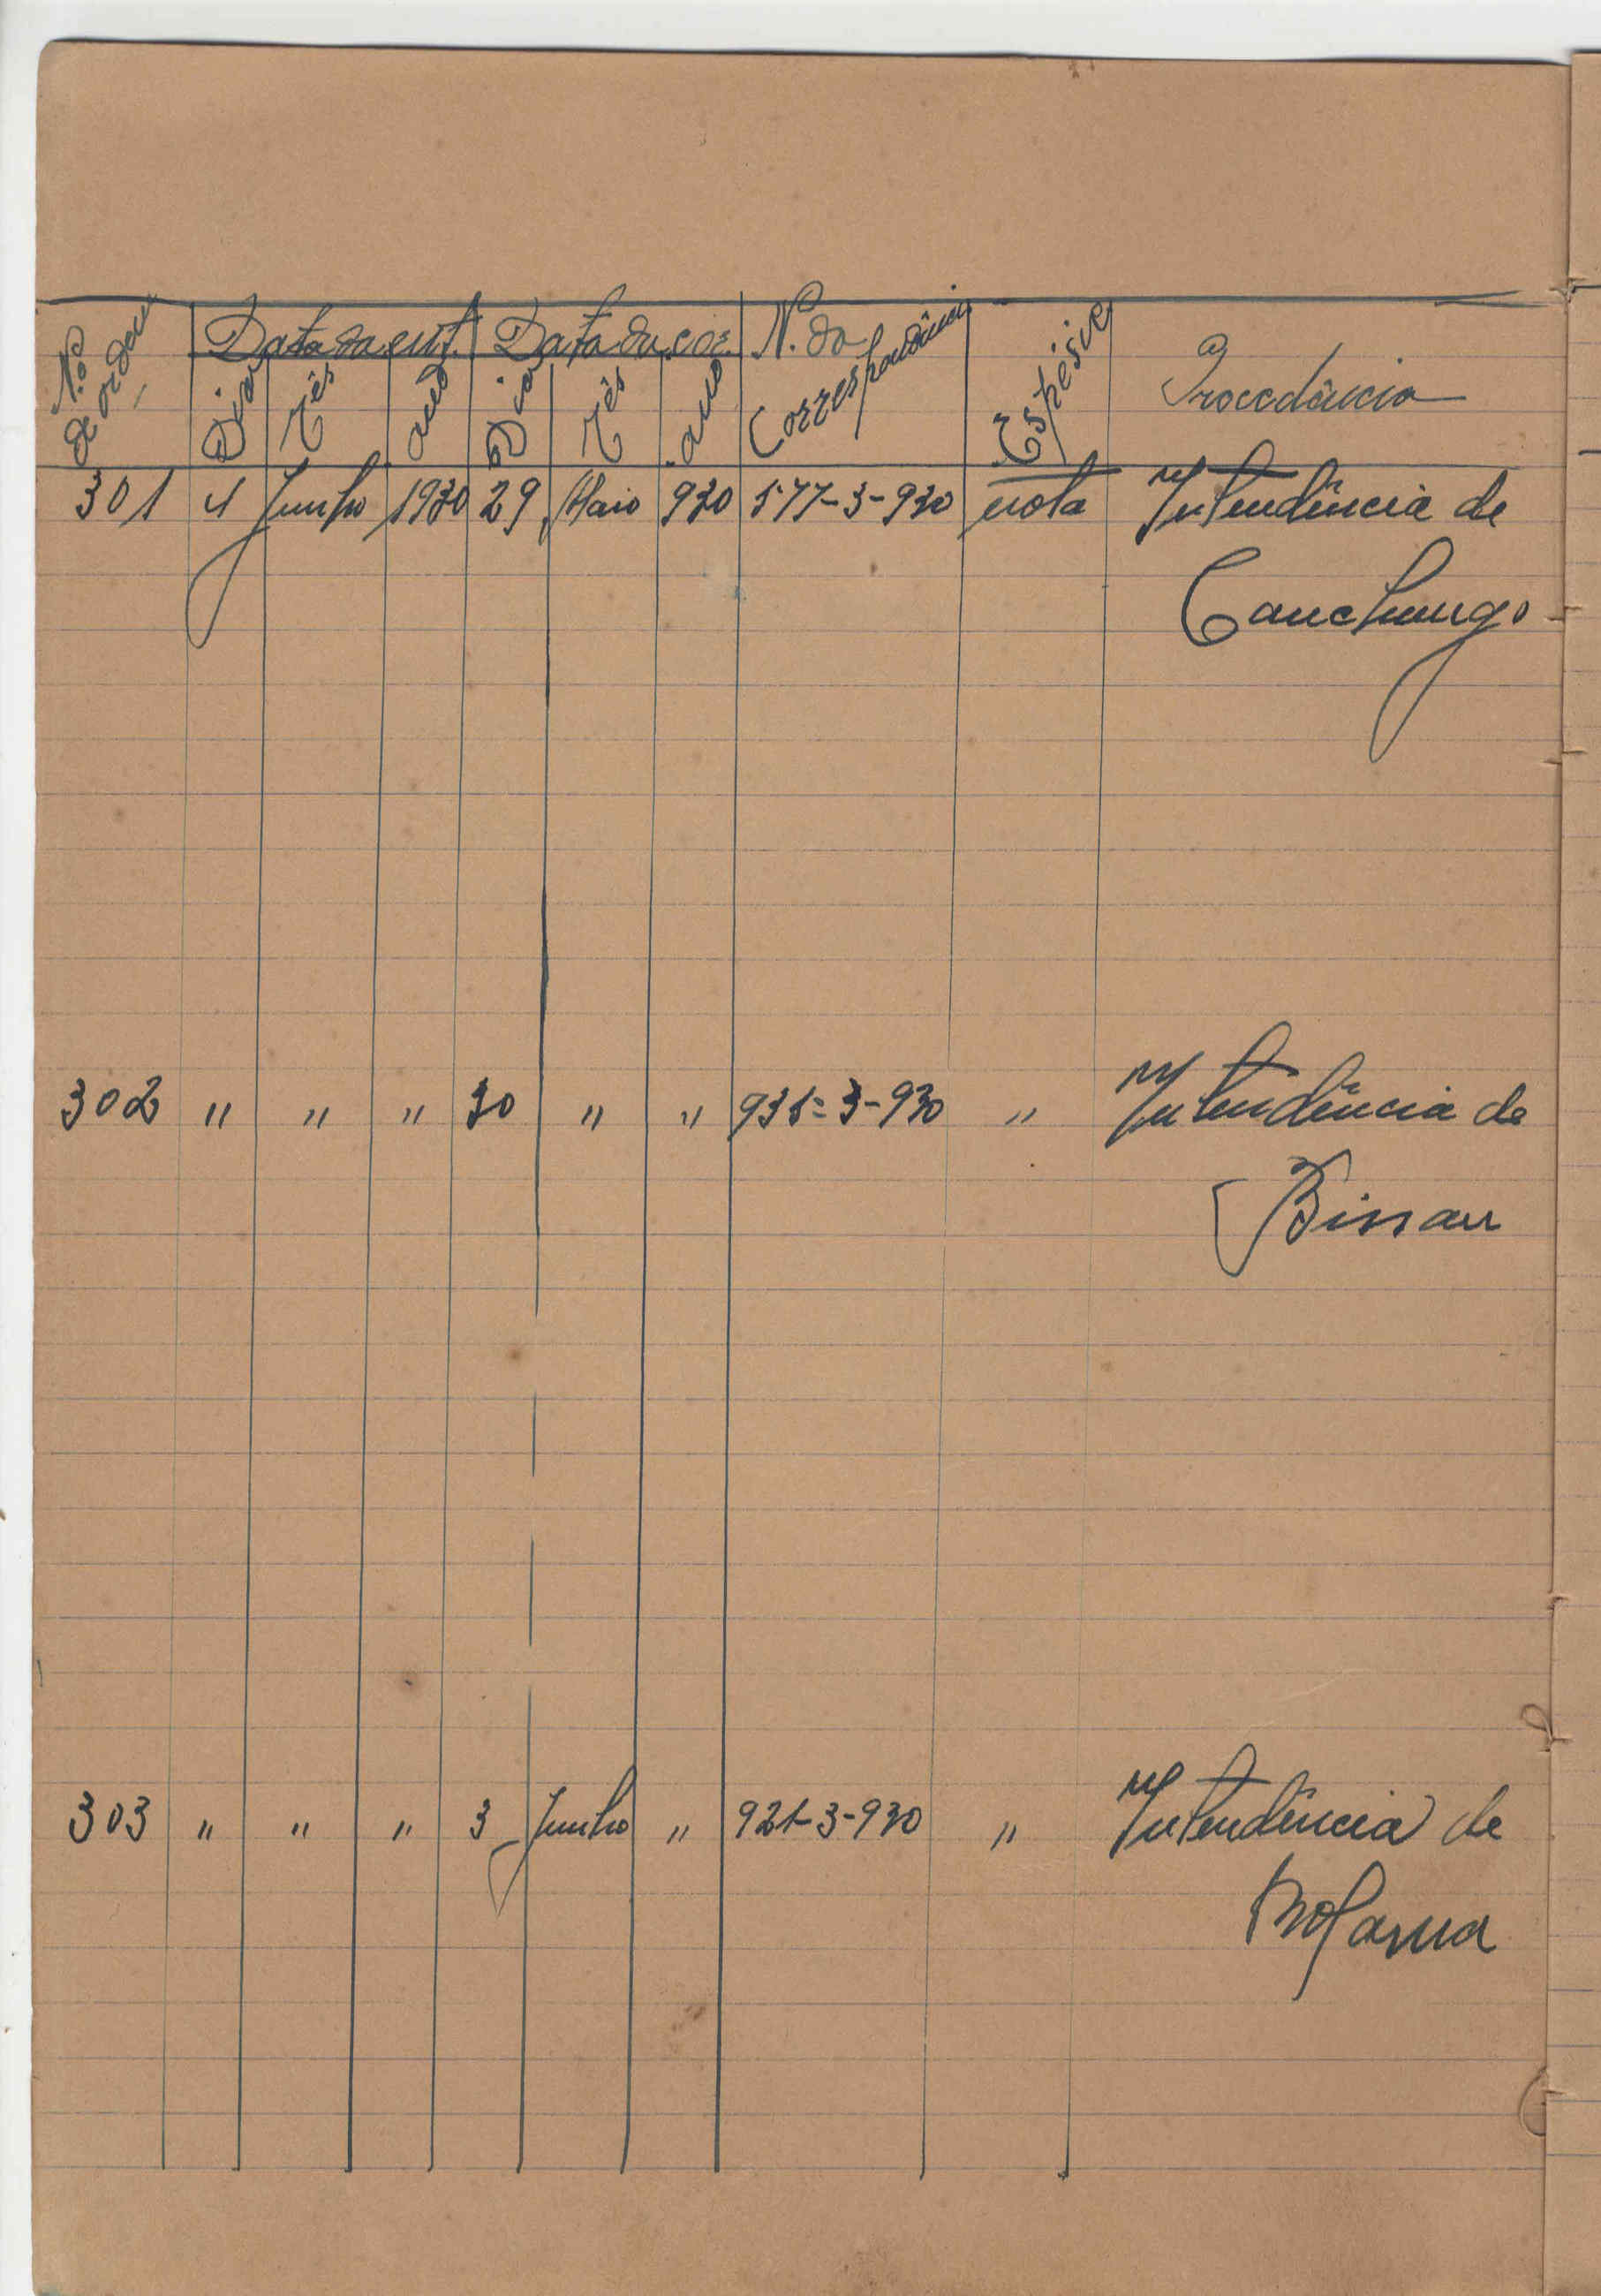 N.º de ordem Data da ent. Data da cor. N. da Correspondência Espésie Procedência
Dia Mês ano Dia Mês ano
301 4 Junho 1930 29 Maio 930 577-3-930 nota Intendência de
Canchungo
302 " " " 30 " " 935=3-930 " Intendência de
Bissau
303 " " " 3 Junho " 921-3-930 " Intendência de
Bolama